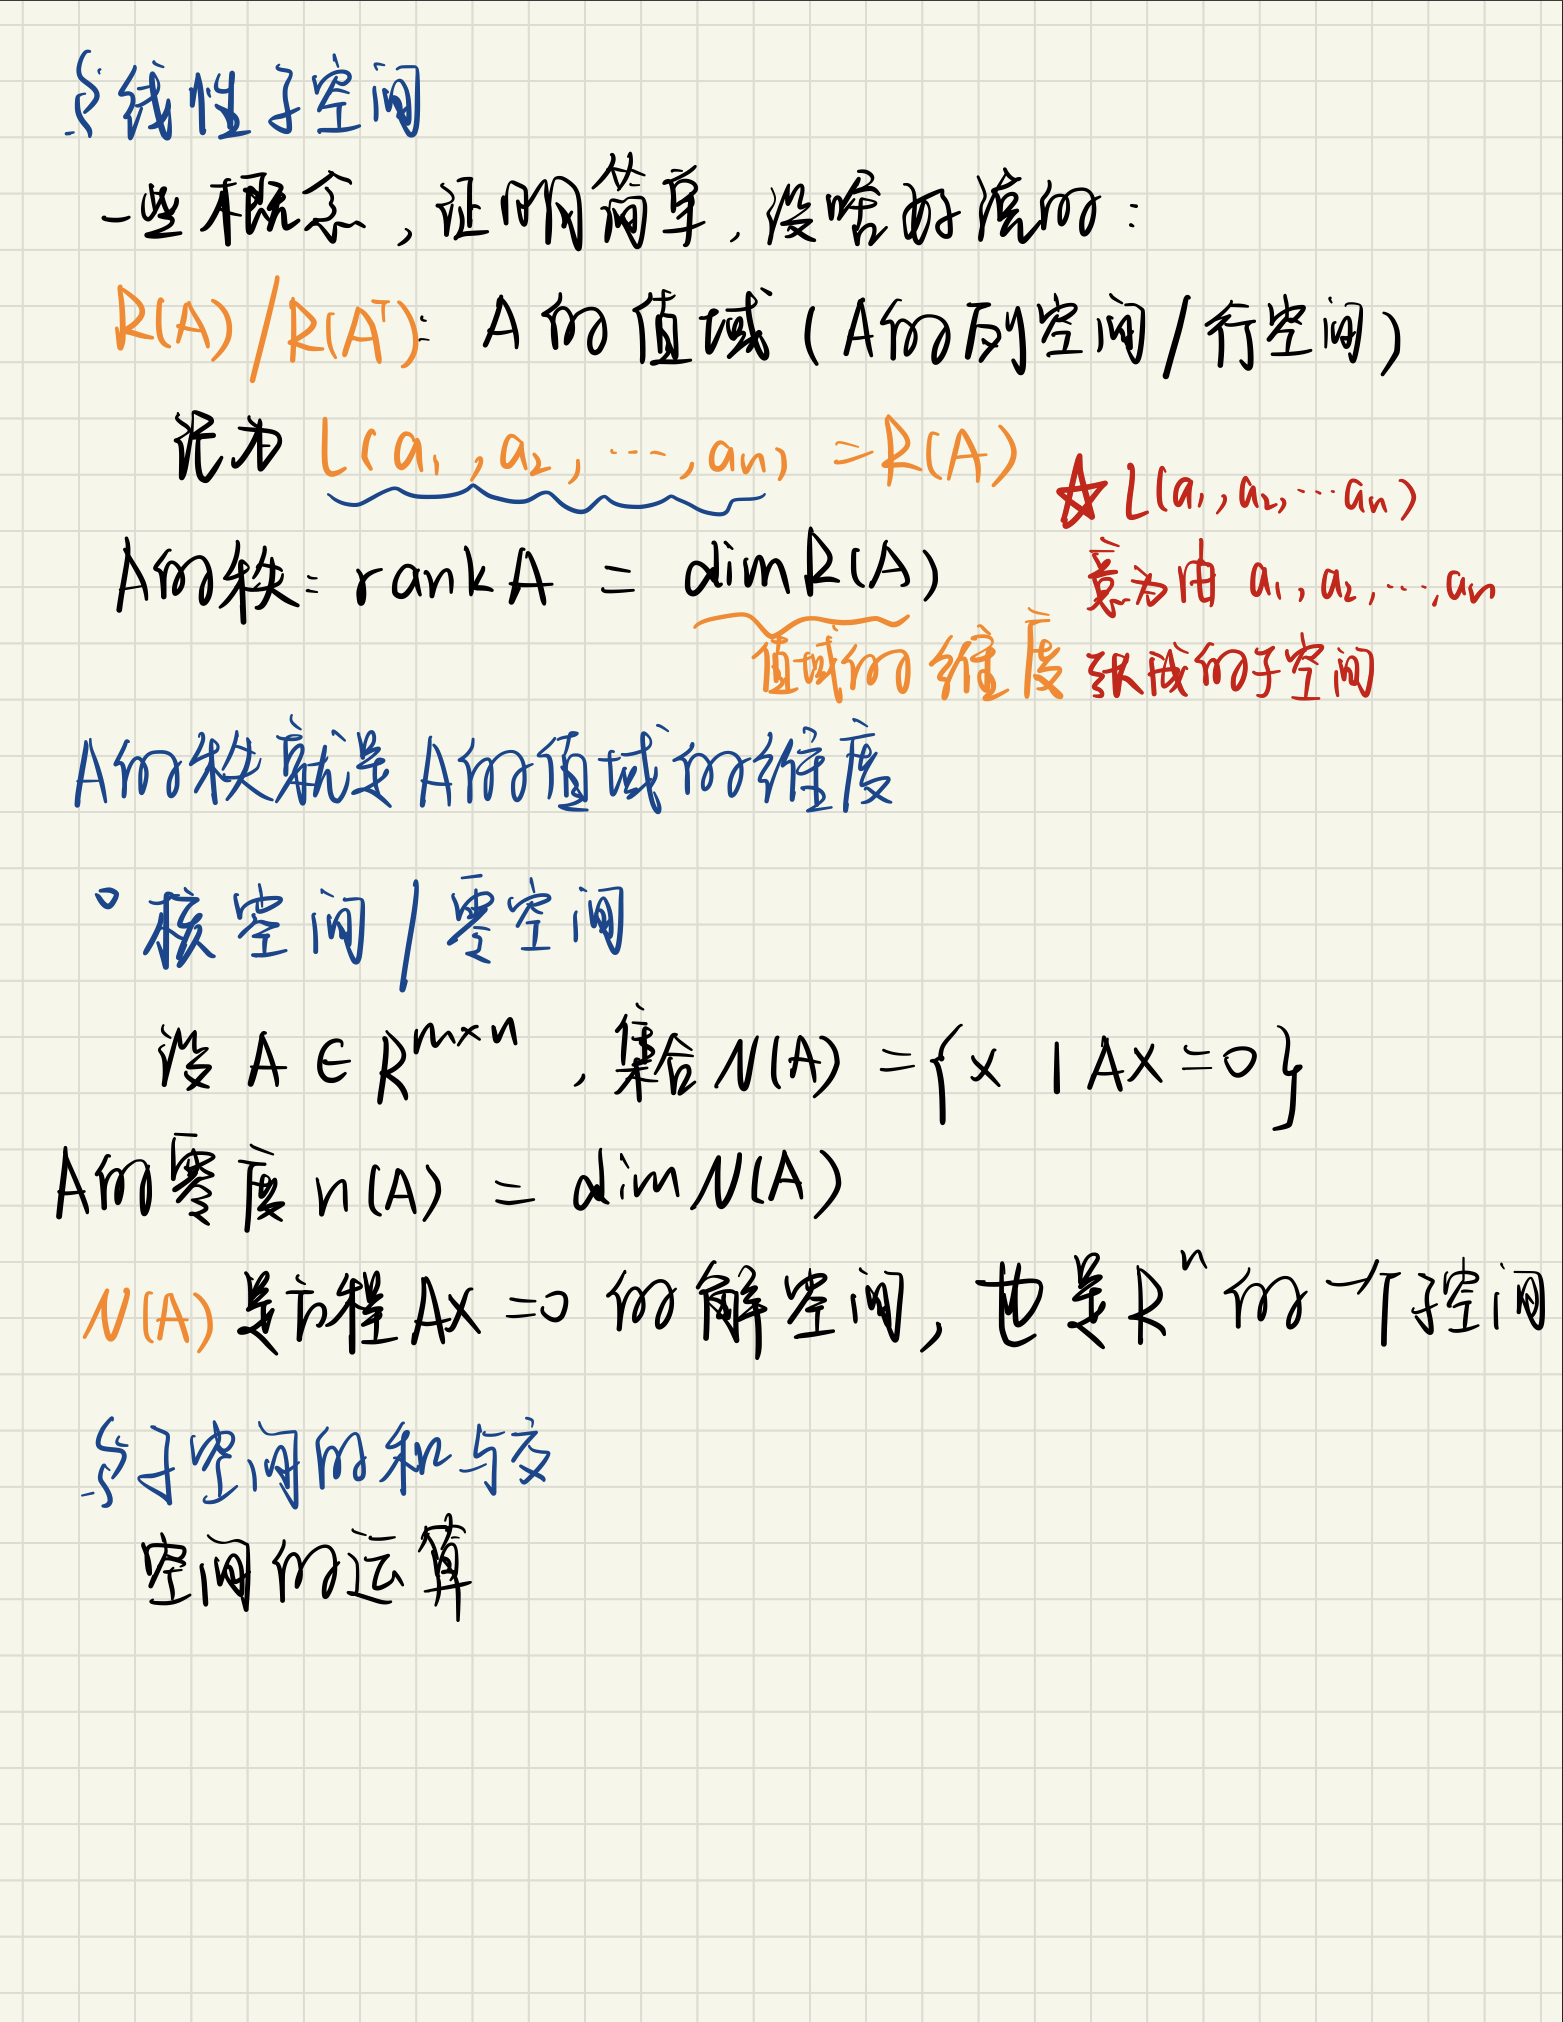 §线性子空间
一些概念,证明简单,没啥好说的:
R(A)/R(Aᵀ): A的值域(A的列空间/行空间)
记为 L(a₁,a₂,…,aₙ) =R(A)
☆ L(a₁,a₂,…aₙ)
意为由 a₁,a₂,…,aₙ
张成的子空间
A的秩: rankA = dimR(A)
值域的维度
A的秩就是A的值域的维度
°核空间/零空间
设 A∈R^{m×n} ,集合N(A)={x | Ax=0}
A的零度n(A) = dimN(A)
N(A)是方程Ax=0 的解空间,也是Rⁿ的一个子空间
§子空间的和与交
空间的运算